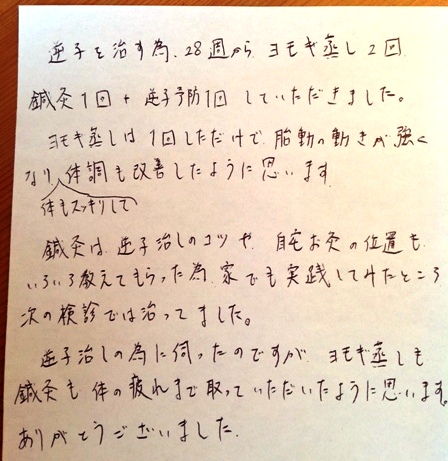 逆子を治す為、28週から ヨモギ蒸し2回
鍼灸1回 + 逆子予防1回 していただきました。
ヨモギ蒸しは 1回しただけで、胎動の動きが強く
なり、体調も改善したように思います
体もスッキリして
鍼灸は、逆子治しのコツや、自宅お灸の位置も
いろいろ教えてもらった為、家でも実践してみたところ
次の検診では治ってました。
逆子治しの為に伺ったのですが、ヨモギ蒸しも
鍼灸も 体の疲れまで取っていただいたように思います。
ありがとうございました。